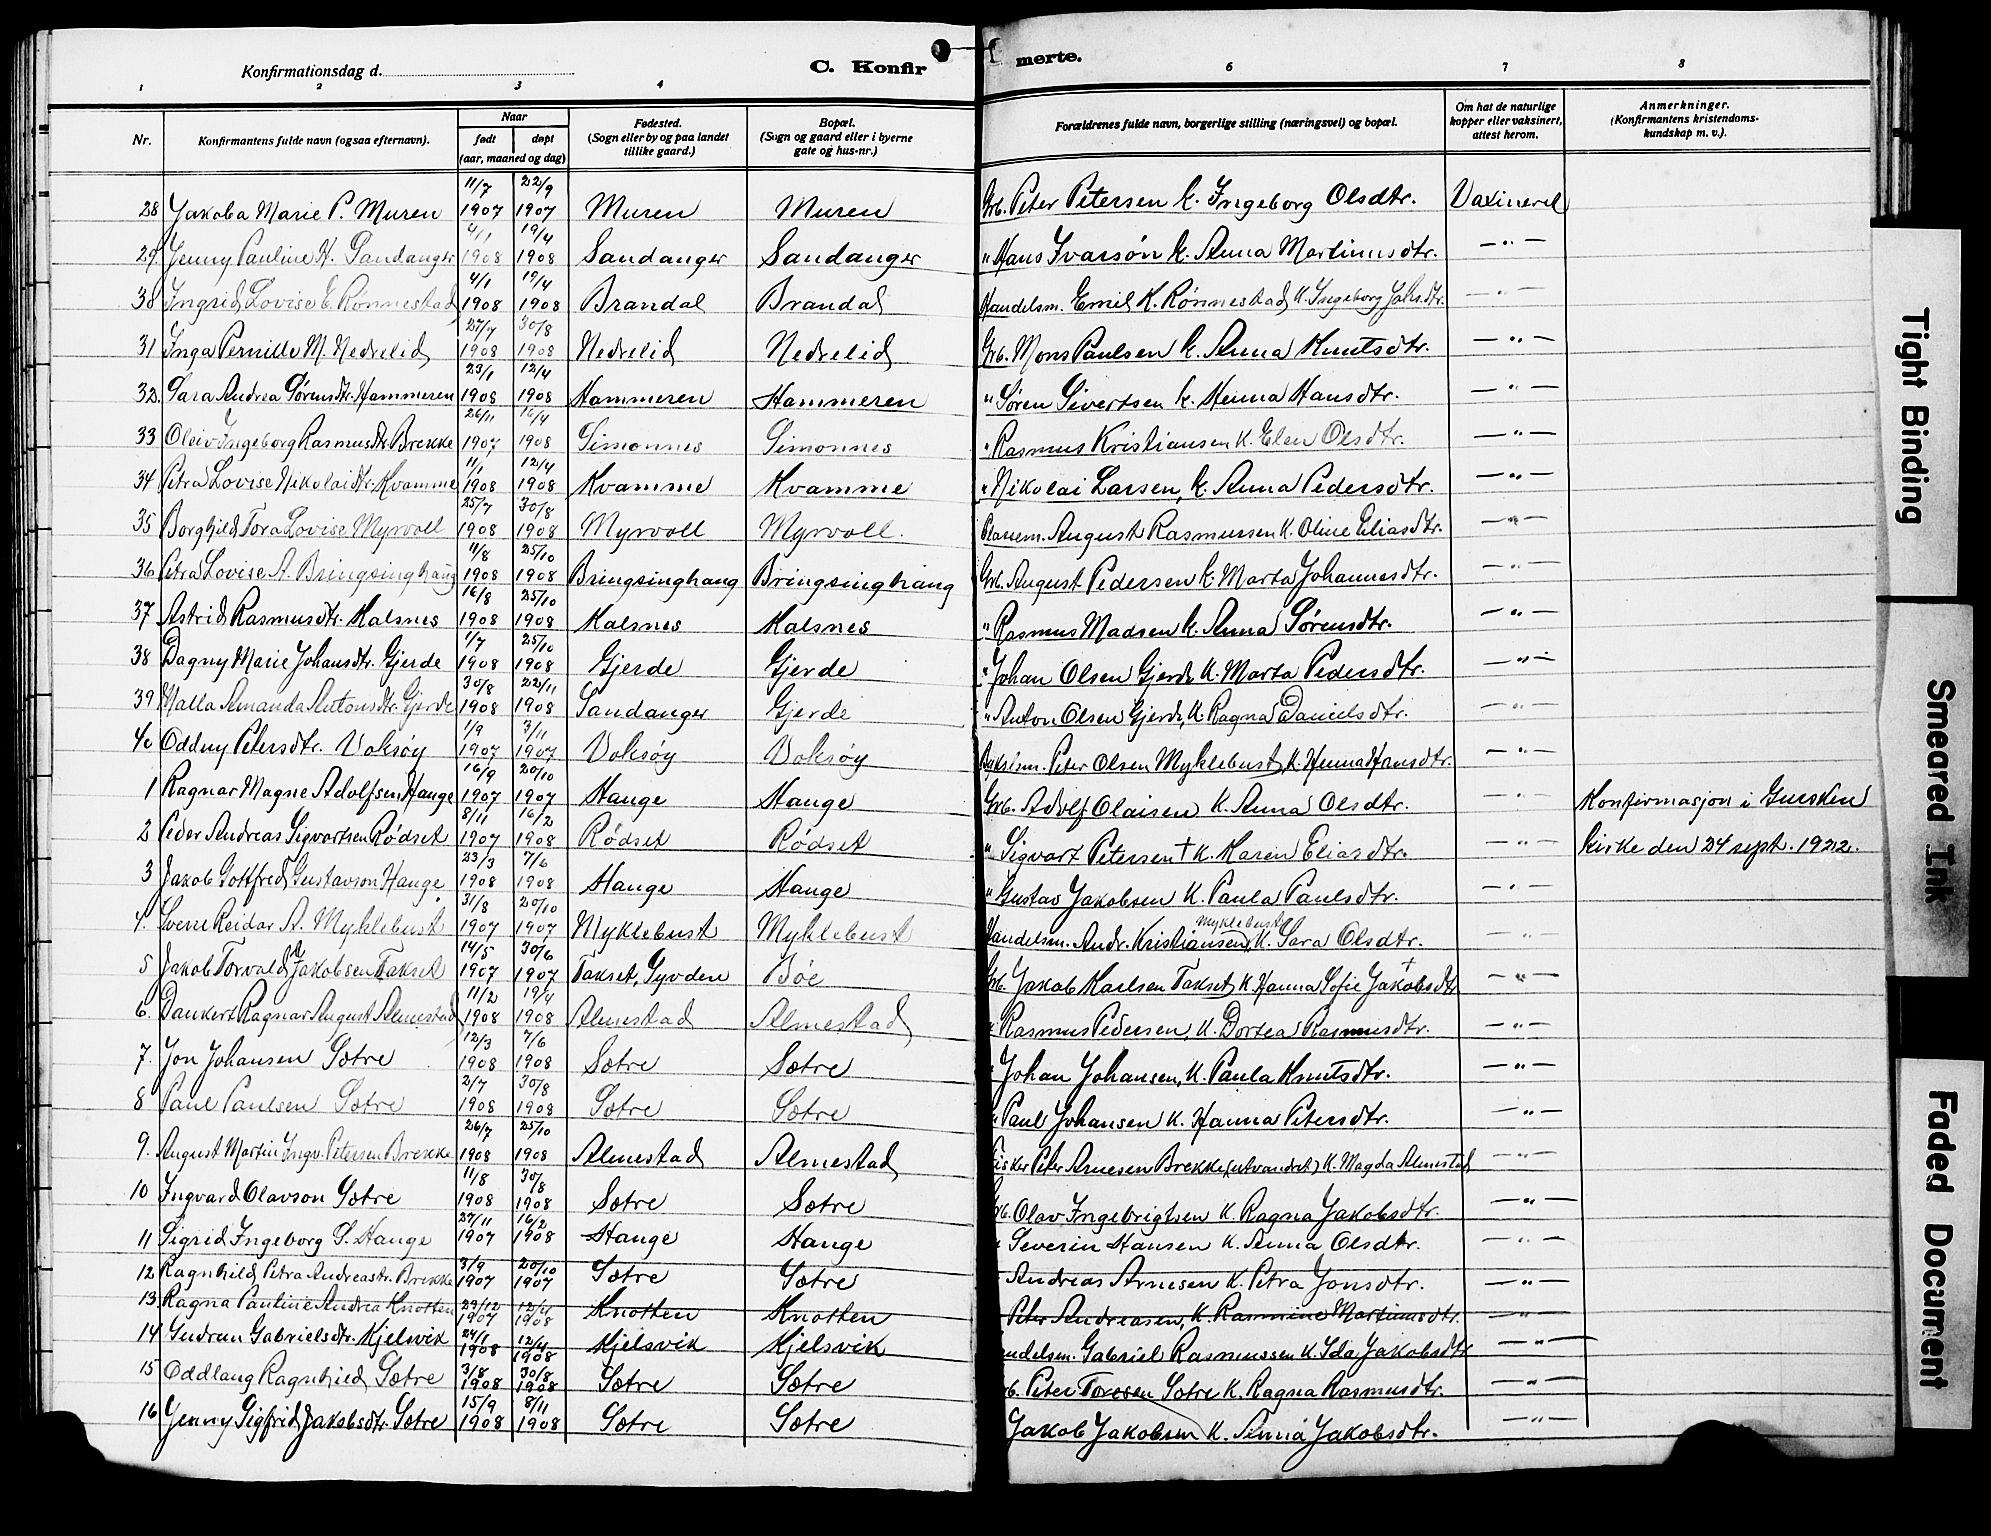 Konfirmationsdag d. C. Konfir merte.
1 2 3 4 6 7 8
Nr. Konfirmantens fulde navn (ogsaa efternavn). Naar født døpt (aar, maaned og dag) Fødested. (Sogn eller by og paa landet tillike gaard.) Bopæl. (Sogn og gaard eller i byerne gate og hus-nr.) Forældrenes fulde navn, borgerlige stilling (næringsvei) og bopæl. Om hat de naturlige kopper eller vaksinert, attest herom. Anmerkninger. (Konfirmantens kristendoms-kundskap m. v.).
28 Jakoba Marie P. Muren 11/7 1907 22/9 1907 Muren Muren Grb. Peter Petersen k. Ingeborg Olsdtr. Vaxineret
29. Jenny Pauline H. Sandanger 4/1 1908 19/4 1908 Sandanger Sandanger " Hans Ivarsøn k. Anna Martinusdtr. —"—
30 Ingrid Lovise E. Rønnestad 4/1 1908 19/4 1908 Brandal Brandal Handelsm. Emil K. Rønnestad K. Ingeborg Johsdtr. —"—
31 Inga Pernille M. Nedrelid 27/7 1908 30/8 1908 Nedrelid Nedrelid Grb. Mons Paulsen k. Anna Knutsdtr. —"—
32. Sara Andrea Sørensdtr. Hammeren 23/1 1908 12/4 1908 Hammeren Hammeren " Søren Sivertsen k. Henna Hansdtr. —"—
33 Oleiv Ingeborg Rasmusdtr Brekke 26/11 1907 16/4 1908 Simonnes Simonnes " Rasmus Kristiansen K. Elen Olsdtr. —"—
34 Petra Lovise Nikolaidtr. Kvamme 11/1 1908 12/4 1908 Kvamme Kvamme " Nikolai Larsen, k. Anna Pedersdtr. —"—
35 Borghild Tora Lovise Myrvoll 25/7 1908 30/8 1908 Myrvoll Myrvoll. August Rasmussen K. Oline Eliasdtr. —"—
36 Petra Lovise A. Bringsinghaug 11/8 1908 25/10 1908 Bringsinghaug Bringsinghaug Grb. August Pedersen k. Marta Johannesdtr. —"—
37 Astrid Rasmusdtr. Halsnes 16/8 1908 25/10 1908 Halsnes Halsnes " Rasmus Madsen k. Anna Sørensdtr. —"—
38 Dagny Marie Johansdtr. Gjerde 1/7 1908 25/10 1908 Gjerde Gjerde " Johan Olsen Gjerde K. Marta Pedersdtr. —"—
39 Malla Amanda Antonsdtr. Gjerde 30/8 1908 22/11 1908 Sandanger Gjerde " Anton Olsen Gjerde, K. Ragna Danielsdtr. —"—
40 Oddny Petersdtr. Voksøy 1/9 1907 3/11 1907 Voksøy Voksøy Peter Olsen Myklebust, K. Henna Hansdtr. —"—
1 Ragnar Magne Adolfsen Hauge 16/9 1907 20/10 1907 Hauge Hauge Grb. Adolf Olaisen K. Anna Olsdtr. —"— Konfirmasjon i Gursken
2 Peder Andreas Sigvartsen Rødset 8/11 1907 16/2 1908 Rødset Rødset " Sigvart Petersen † K. Maren Eliasdtr. —"— kirke den 24 sept. 1922.
3 Jakob Gottfred Gustavson Hauge 23/3 1908 7/6 1908 Hauge Hauge " Gustav Jakobsen K. Paula Paulsdtr. —"—
4. Sverre Reidar A. Myklebust 31/8 1907 20/10 1907 Myklebust Myklebust Handelsm. Andr. Kristiansen Myklebust, K. Sara Olsdtr. —"—
5 Jakob Torvald Jakobsen Takset 14/5 1907 30/6 1907 Takset, Syvden Bøe Grb. Jakob Karlsen Takset K. Hanna Sofie Jakobsdtr † —"—
6. Dankert Ragnar August Almestad 11/2 1908 19/4 1908 Almestad Almestad " Rasmus Pedersen, K. Dortea Rasmusdtr. —"—
7. Jon Johansen Sætre 12/3 1908 7/6 1908 Sætre Sætre " Johan Johansen, K. Paula Knutsdtr. —"—
8 Paul Paulsen Sætre 2/7 1908 30/8 1908 Sætre Sætre " Paul Johansen K. Hanna Petersdtr. —"—
9. August Martin Ingv. Petersen Brekke 26/7 1908 25/10 1908 Almestad Almestad Fisker Peter Arnesen Brekke (utvandret) K. Magda Almestad —"—
10 Ingvard Olavson Sætre 11/8 1908 30/8 1908 Sætre Sætre Grb. Olav Ingebrigtsen K. Ragna Jakobsdtr. —"—
11 Sigrid Ingeborg S. Hauge 27/11 1907 16/2 1908 Hauge Hauge " Severin Hansen K. Anna Olsdtr. —"—
12 Ragnhild Petra Andreasdtr. Brekke 3/9 1907 20/10 1907 Sætre Sætre Andreas Arnesen K. Petra Jonsdtr. —"—
13. Ragna Pauline Andrea Knotten 29/12 1907 12/4 1908 Knotten Knotten Peter Andreasen, K. Rasmine Martinusdtr. —"—
14 Gudrun Gabrielsdtr. Kjelsvik 24/1 1908 12/4 1908 Kjelsvik Kjelsvik Handelsm. Gabriel Rasmussen K. Ida Jakobsdtr —"—
15 Oddlaug Ragnhild Sætre 3/8 1908 30/8 1908 Sætre Sætre Grb. Peter Toresen Sætre K. Ragna Rasmusdtr. —"—
16 Jenny Sigfrid Jakobsdtr. Sætre 15/9 1908 8/11 1908 Sætre Sætre Jakob Jakobsen K. Jakobsdtr. —"—
Tight Binding
Smeared Ink
Faded Document